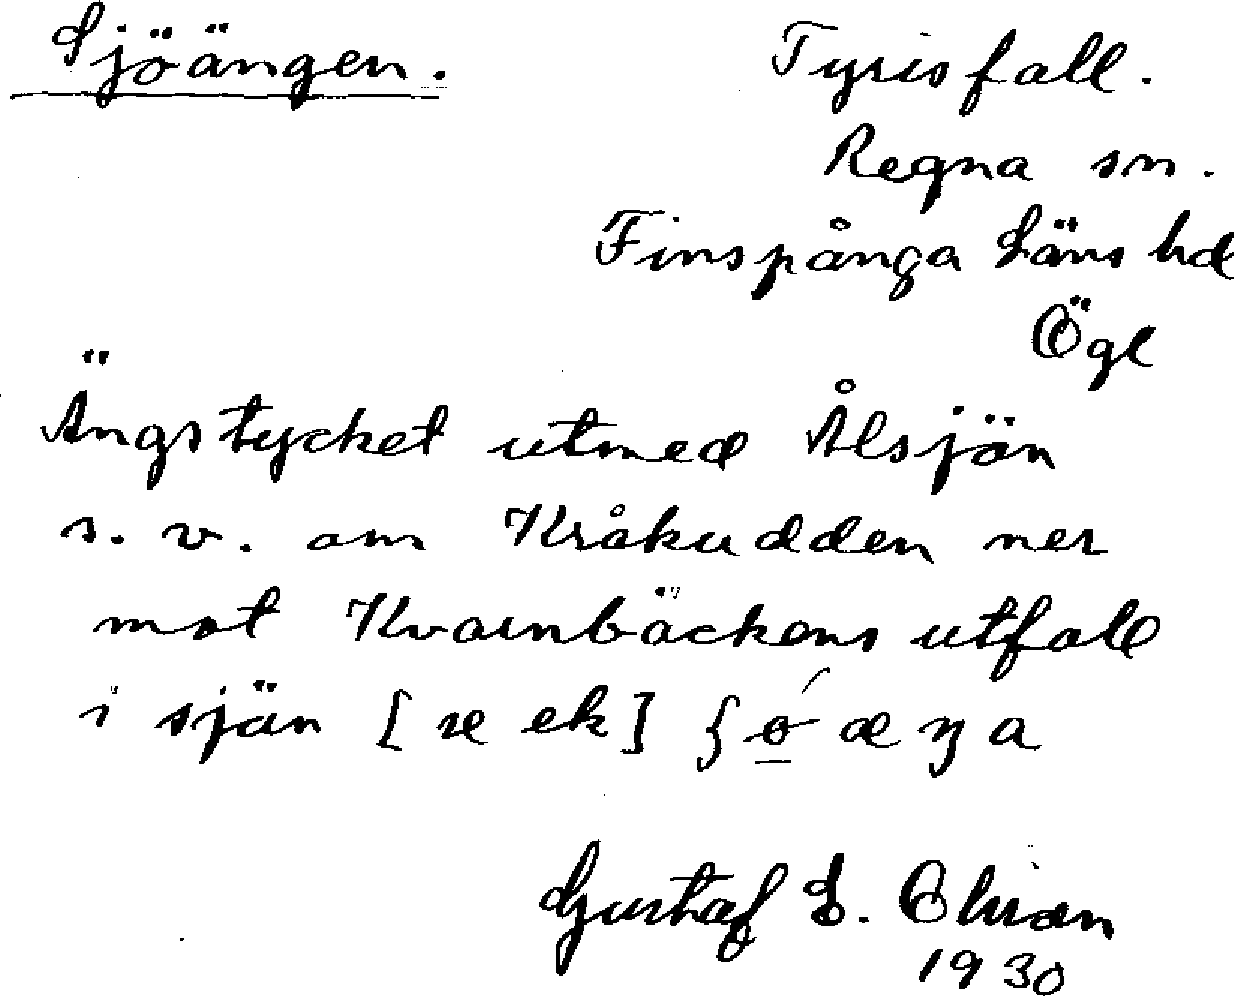 Sjöängen.
Tyrisfall.
Regna sn.
Finspånga Läns hd
Ögl
Ängstycket utmed Ålsjön
s. v. om Kråkudden ner
mot Kvarnbäckens utfall
i sjön [ek]
Gustaf
1930